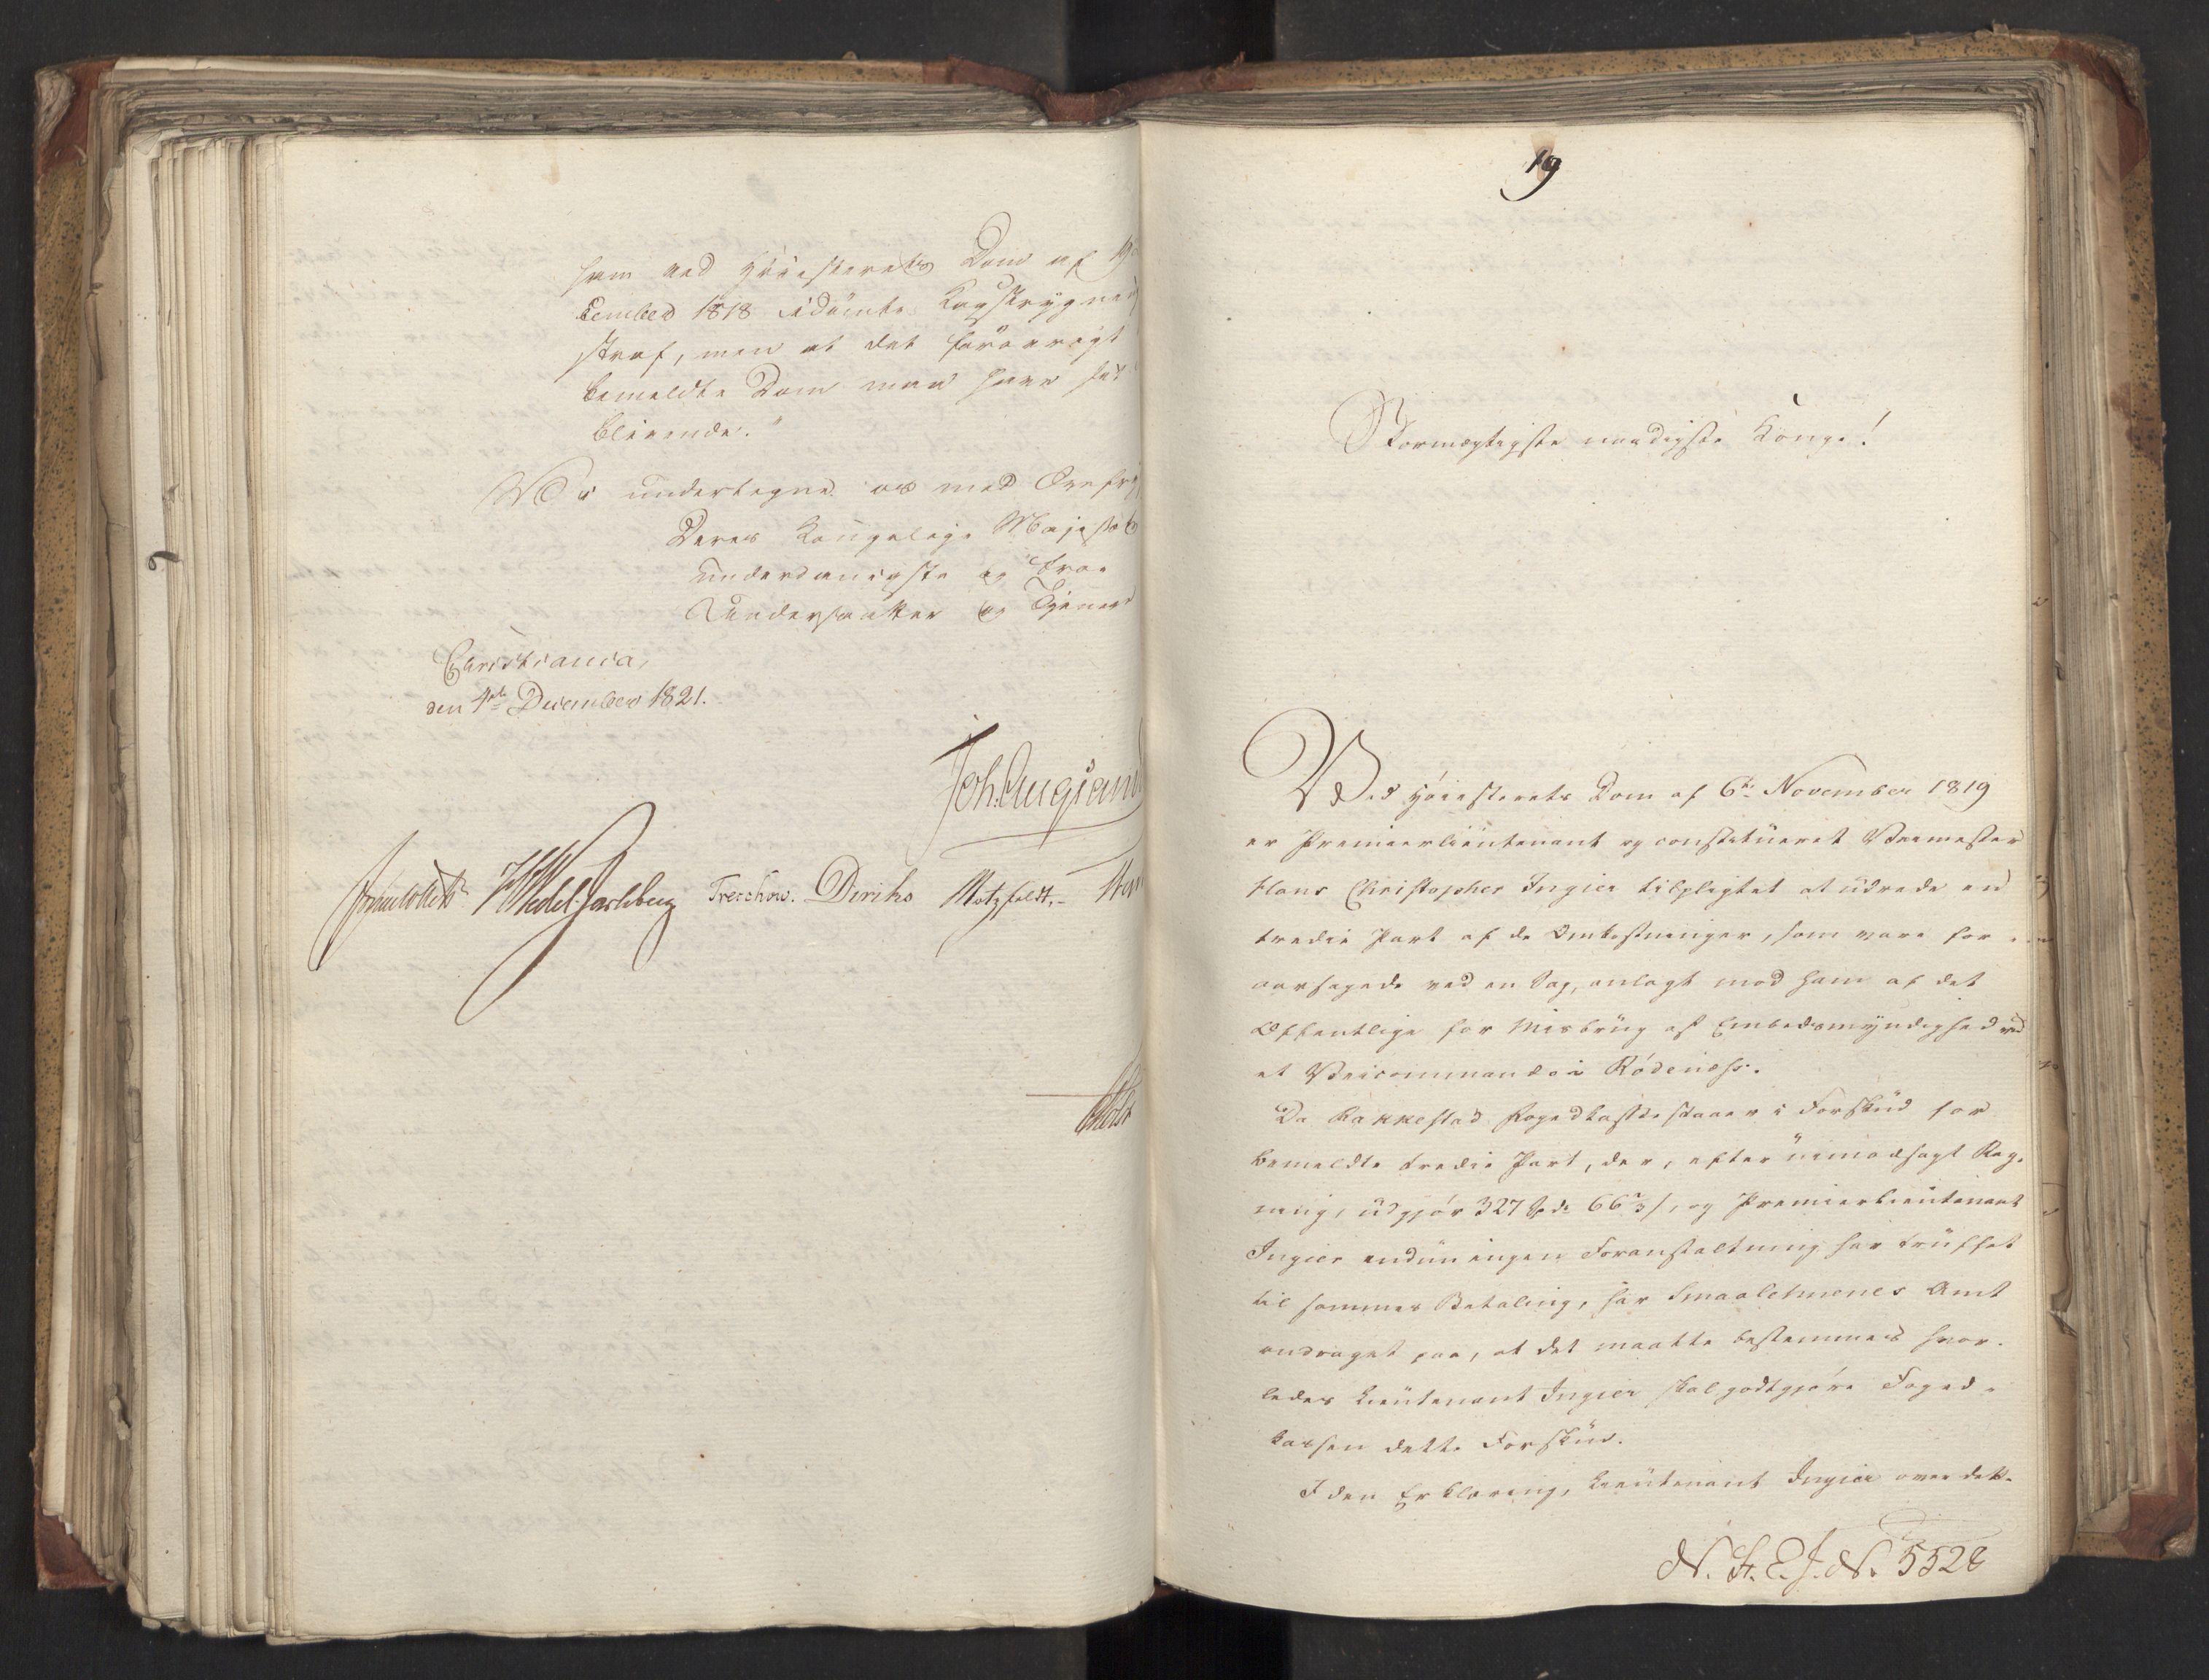 ham ved Høiesterets Dom af 19
cember 1818 idømte Kagstrygnings
straf, men at det forøvrigt
bemeldte Dom maa have sit
blivende."
Vi undertegne os med Ærefr
Deres Kongelige Majestæts
underdanigste og troe
Undersaatter og Tjenere
Christiania,
den 4de December 1821.
Joh. Aug. Sand
Sommerhielm HWedel Jarlsberg Treschow. Diriks Motzfeldt.
Holst
19
Stormægtigste naadigste Konge!
Ved Høiesterets Dom af 6te November 1819
er Premierlieutenant og constitueret Veimester
Hans Christopher Ingier tilpligtet at udrede en
tredie Part af de Omkostninger, som vare for-
aarsagede ved en Sag, anlagt mod ham af det
Offentlige for Misbrug af Embedsmyndighed ved
et Veicommando i Rødenæss.
Da Rakkestad Fogedkasse staaer i Forskud for
bemeldte tredie Part, der, efter uimodsagt Reg-
ning, udgjør 327 Spd. 66 2/3 s, og Premierlieutenant
Ingier endnu ingen Foranstaltning har truffet
til sammes Betaling, har Smaalehnenes Amt
andraget paa, at det maatte bestemmes hvor-
ledes Lieutenant Ingier skal godtgjøre Foged-
kassen dette Forskud.
I den Erklæring, Lieutenant Ingier over dette
N. St. E. J. N. 5528